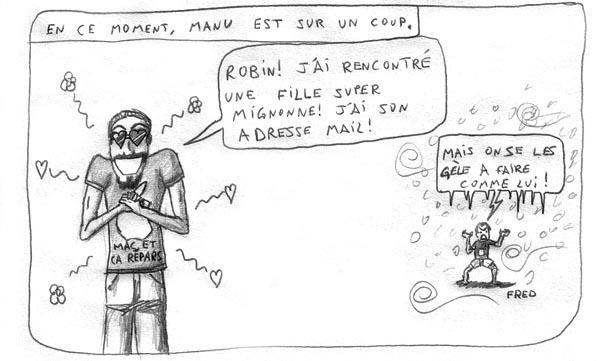 EN CE MOMENT, MANU EST SUR UN COUP.
ROBIN! J'AI RENCONTRÉ
UNE FILLE SUPER
MIGNONNE! J'AI SON
ADRESSE MAIL!
MAIS ON SE LES
GÈLE A FAIRE
COMME LUI!
MAC ET
CA REPARS
FRED